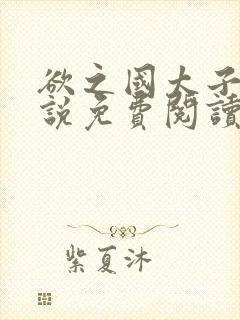 欲之國大子
說免費閱讀
紫夏沐